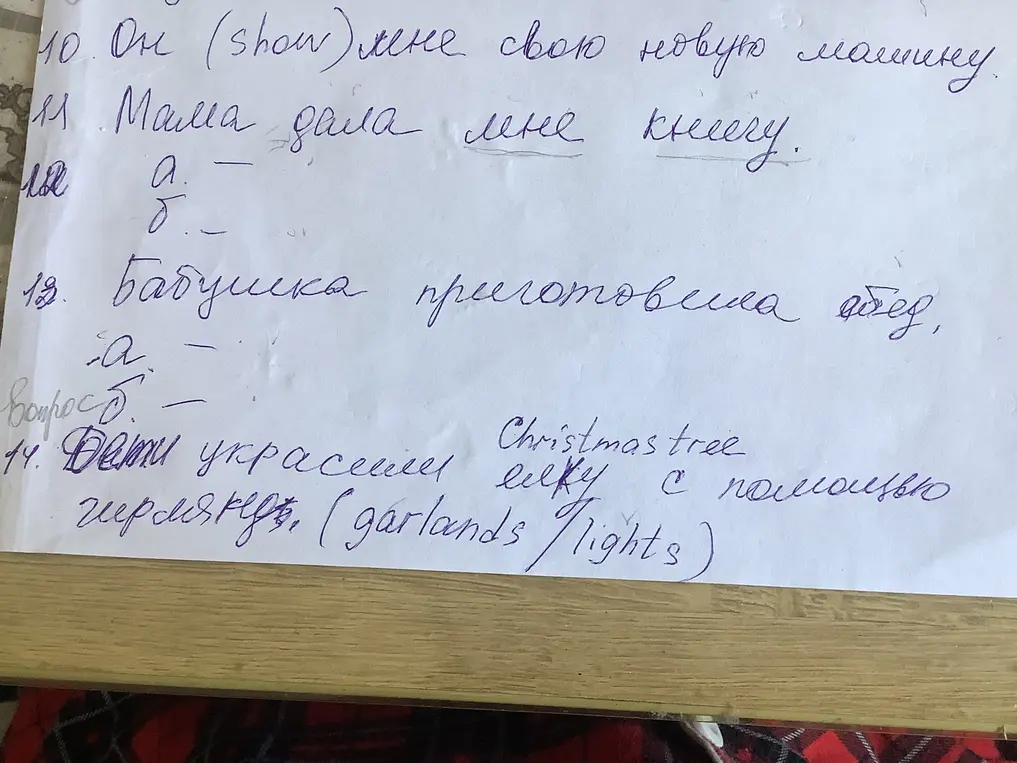 10. Он (show) мне свою новую машину.
11. Мама дала мне книгу.
12 а. —
б. —
13. Бабушка приготовила обед.
а. —
Вопрос б. —
14. Дети украсили Christmas tree ёлку с помощью
гирлянд. (garlands / lights)